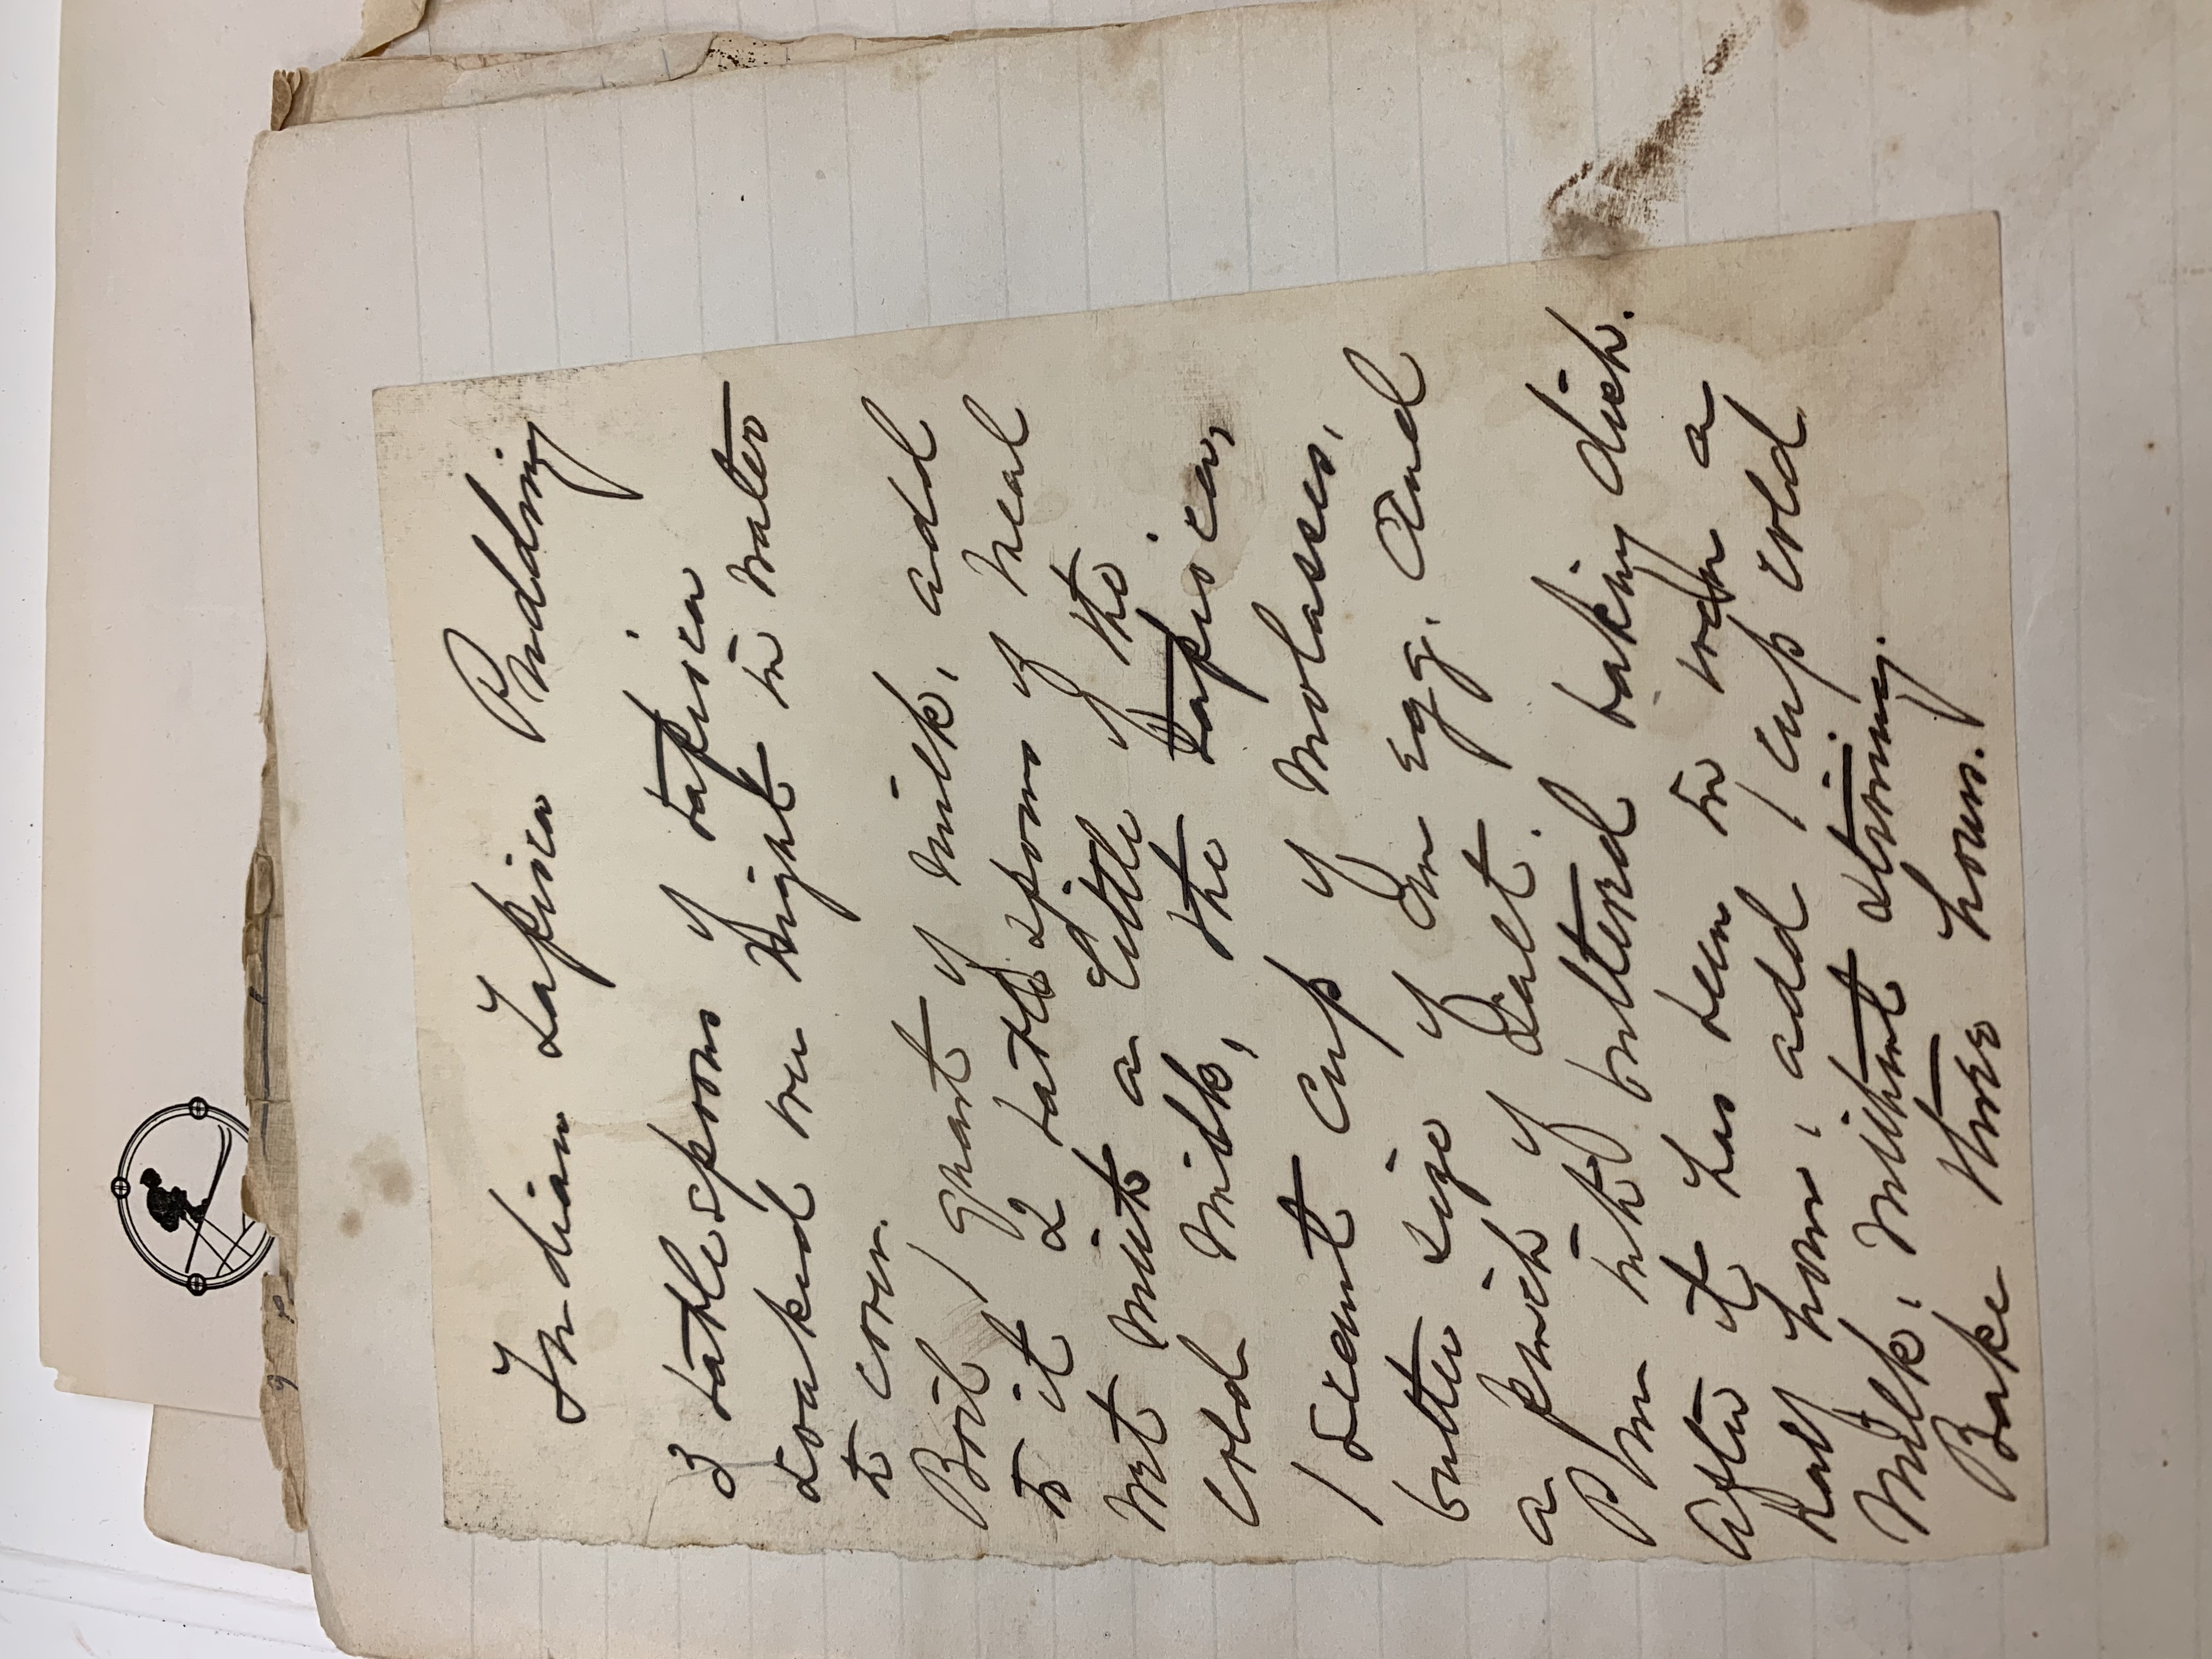 Indian Tapioca Pudding
3 tablespoons of tapioca
soaked over night in water
to cover.
Boil 1 quart of milk, add
to it 2 tablespoons of meal
wet with a little of the
cold milk, the tapioca,
1 scant cup of molasses,
butter size of an egg, and
a pinch of salt.
Pour into buttered baking dish.
After it has been in oven a
half hour, add 1 cup cold
milk, without stirring.
Bake three hours.